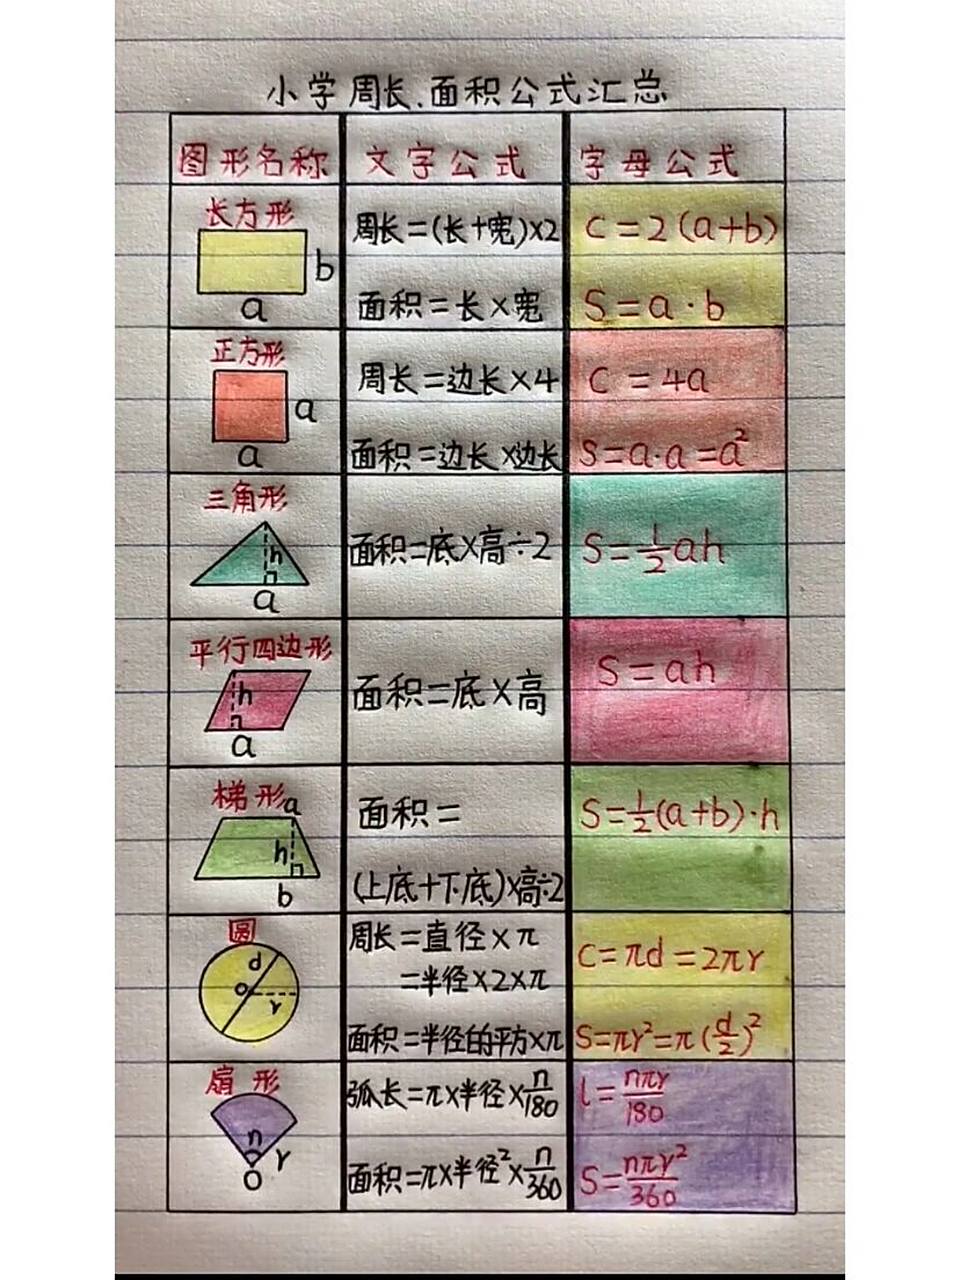 小学周长、面积公式汇总
图形名称 文字公式 字母公式
长方形
b
a
周长=(长+宽)×2
C=2(a+b)
面积=长×宽
S=a·b
正方形
a
a
周长=边长×4
C=4a
面积=边长×边长
S=a·a=a²
三角形
h
a
面积=底×高÷2
S=½ah
平行四边形
h
a
面积=底×高
S=ah
梯形
a
h
b
面积=
(上底+下底)×高÷2
S=½(a+b)·h
圆
d
o
r
周长=直径×π
=半径×2×π
C=πd=2πr
面积=半径的平方×π
S=πr²=π(d/2)²
扇形
n
r
O
弧长=π×半径×n/180
l=nπr/180
面积=π×半径²×n/360
S=nπr²/360